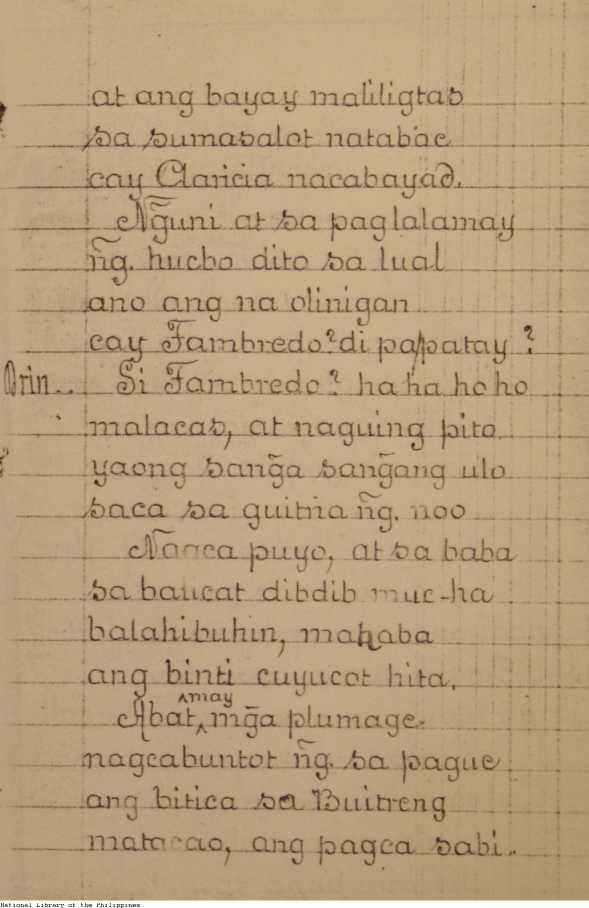 at ang bayay maliligtas
sa sumasalot natabac
cay Claricia nacabayad.
Ng̃uni at sa paglalamay
ñg. hucbo dito sa lual
ano ang na olinigan
cay Fambredo? di papatay?
Orin.. Si Fambredo? ha ha ho ho
malacas, at naguing pito
yaong sang̃a sang̃ang ulo
saca sa guitna ñg. noo
Nagca puyo, at sa baba
sa baucat dibdib muc-ha
balahibuhin, mahaba
ang binti cuyucot hita.
Abat, ^may mg̃a plumage
nagcabuntot ñg. sa pague
ang bitica sa Buitreng
matacao, ang pagca sabi.
National Library of the Philippines